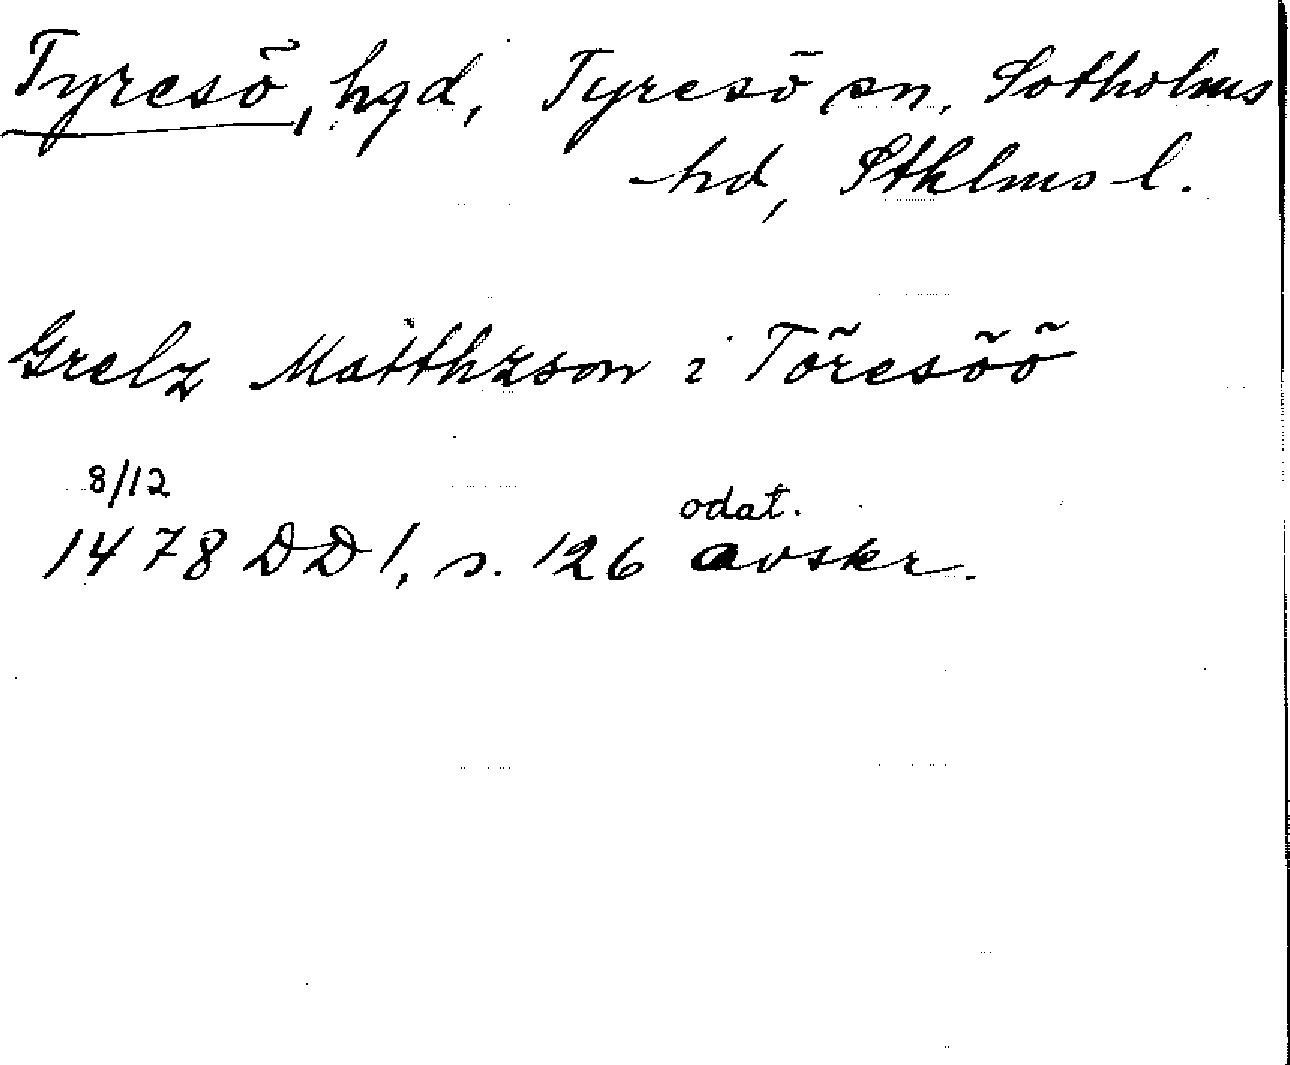 Tyresö, hgd, Tyresö sn, Sotholms
hd, Sthlms l.
Grelz Matthzson i Töresöö
8/12
odat.
1478 DD 1, s. 126 avskr.